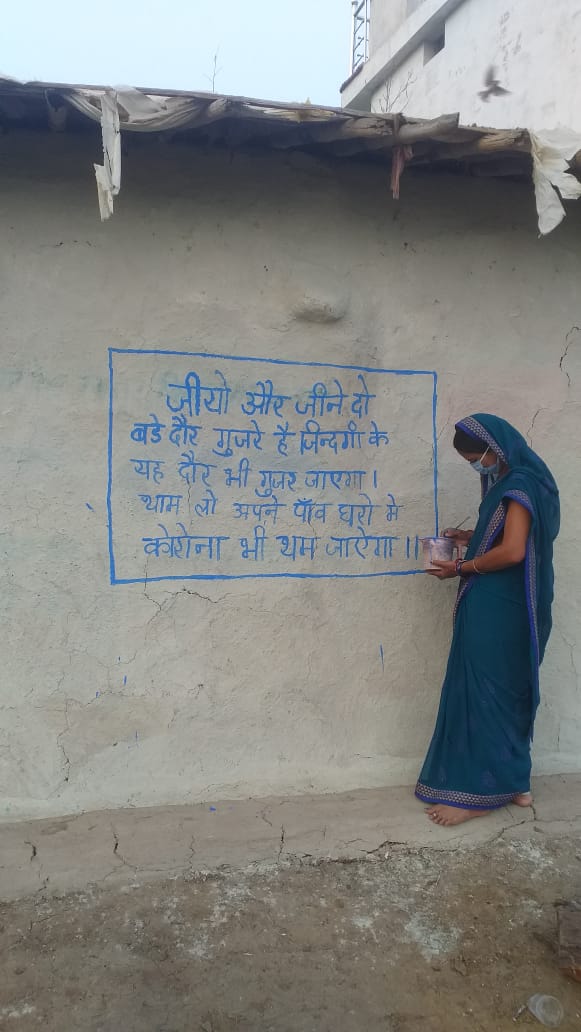 जीयो और जीने दो
बडे दौर गुजरे है जिन्दगी के
यह दौर भी गुजर जाएगा।
थाम लो अपने पाँव घरो मे
कोरोना भी थम जाऐगा॥